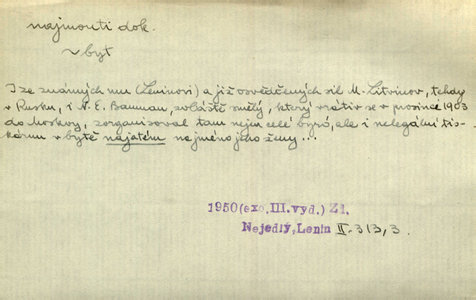 najmouti dok.
~ byt
I ze známých mu (Leninovi) a již osvědčených sil M. Litvinov, tehdy
v Rusku, i N. E. Bauman, zvláště smělý, který vrátiv se v prosinci 1903
do Moskvy, zorganisoval tam nejen celé byró, ale i nelegální tis-
kárnu v bytě najatém na jméno jeho ženy ...
1950(exc. III. vyd.) Zl.
Nejedlý, Lenin II. 313, 3.